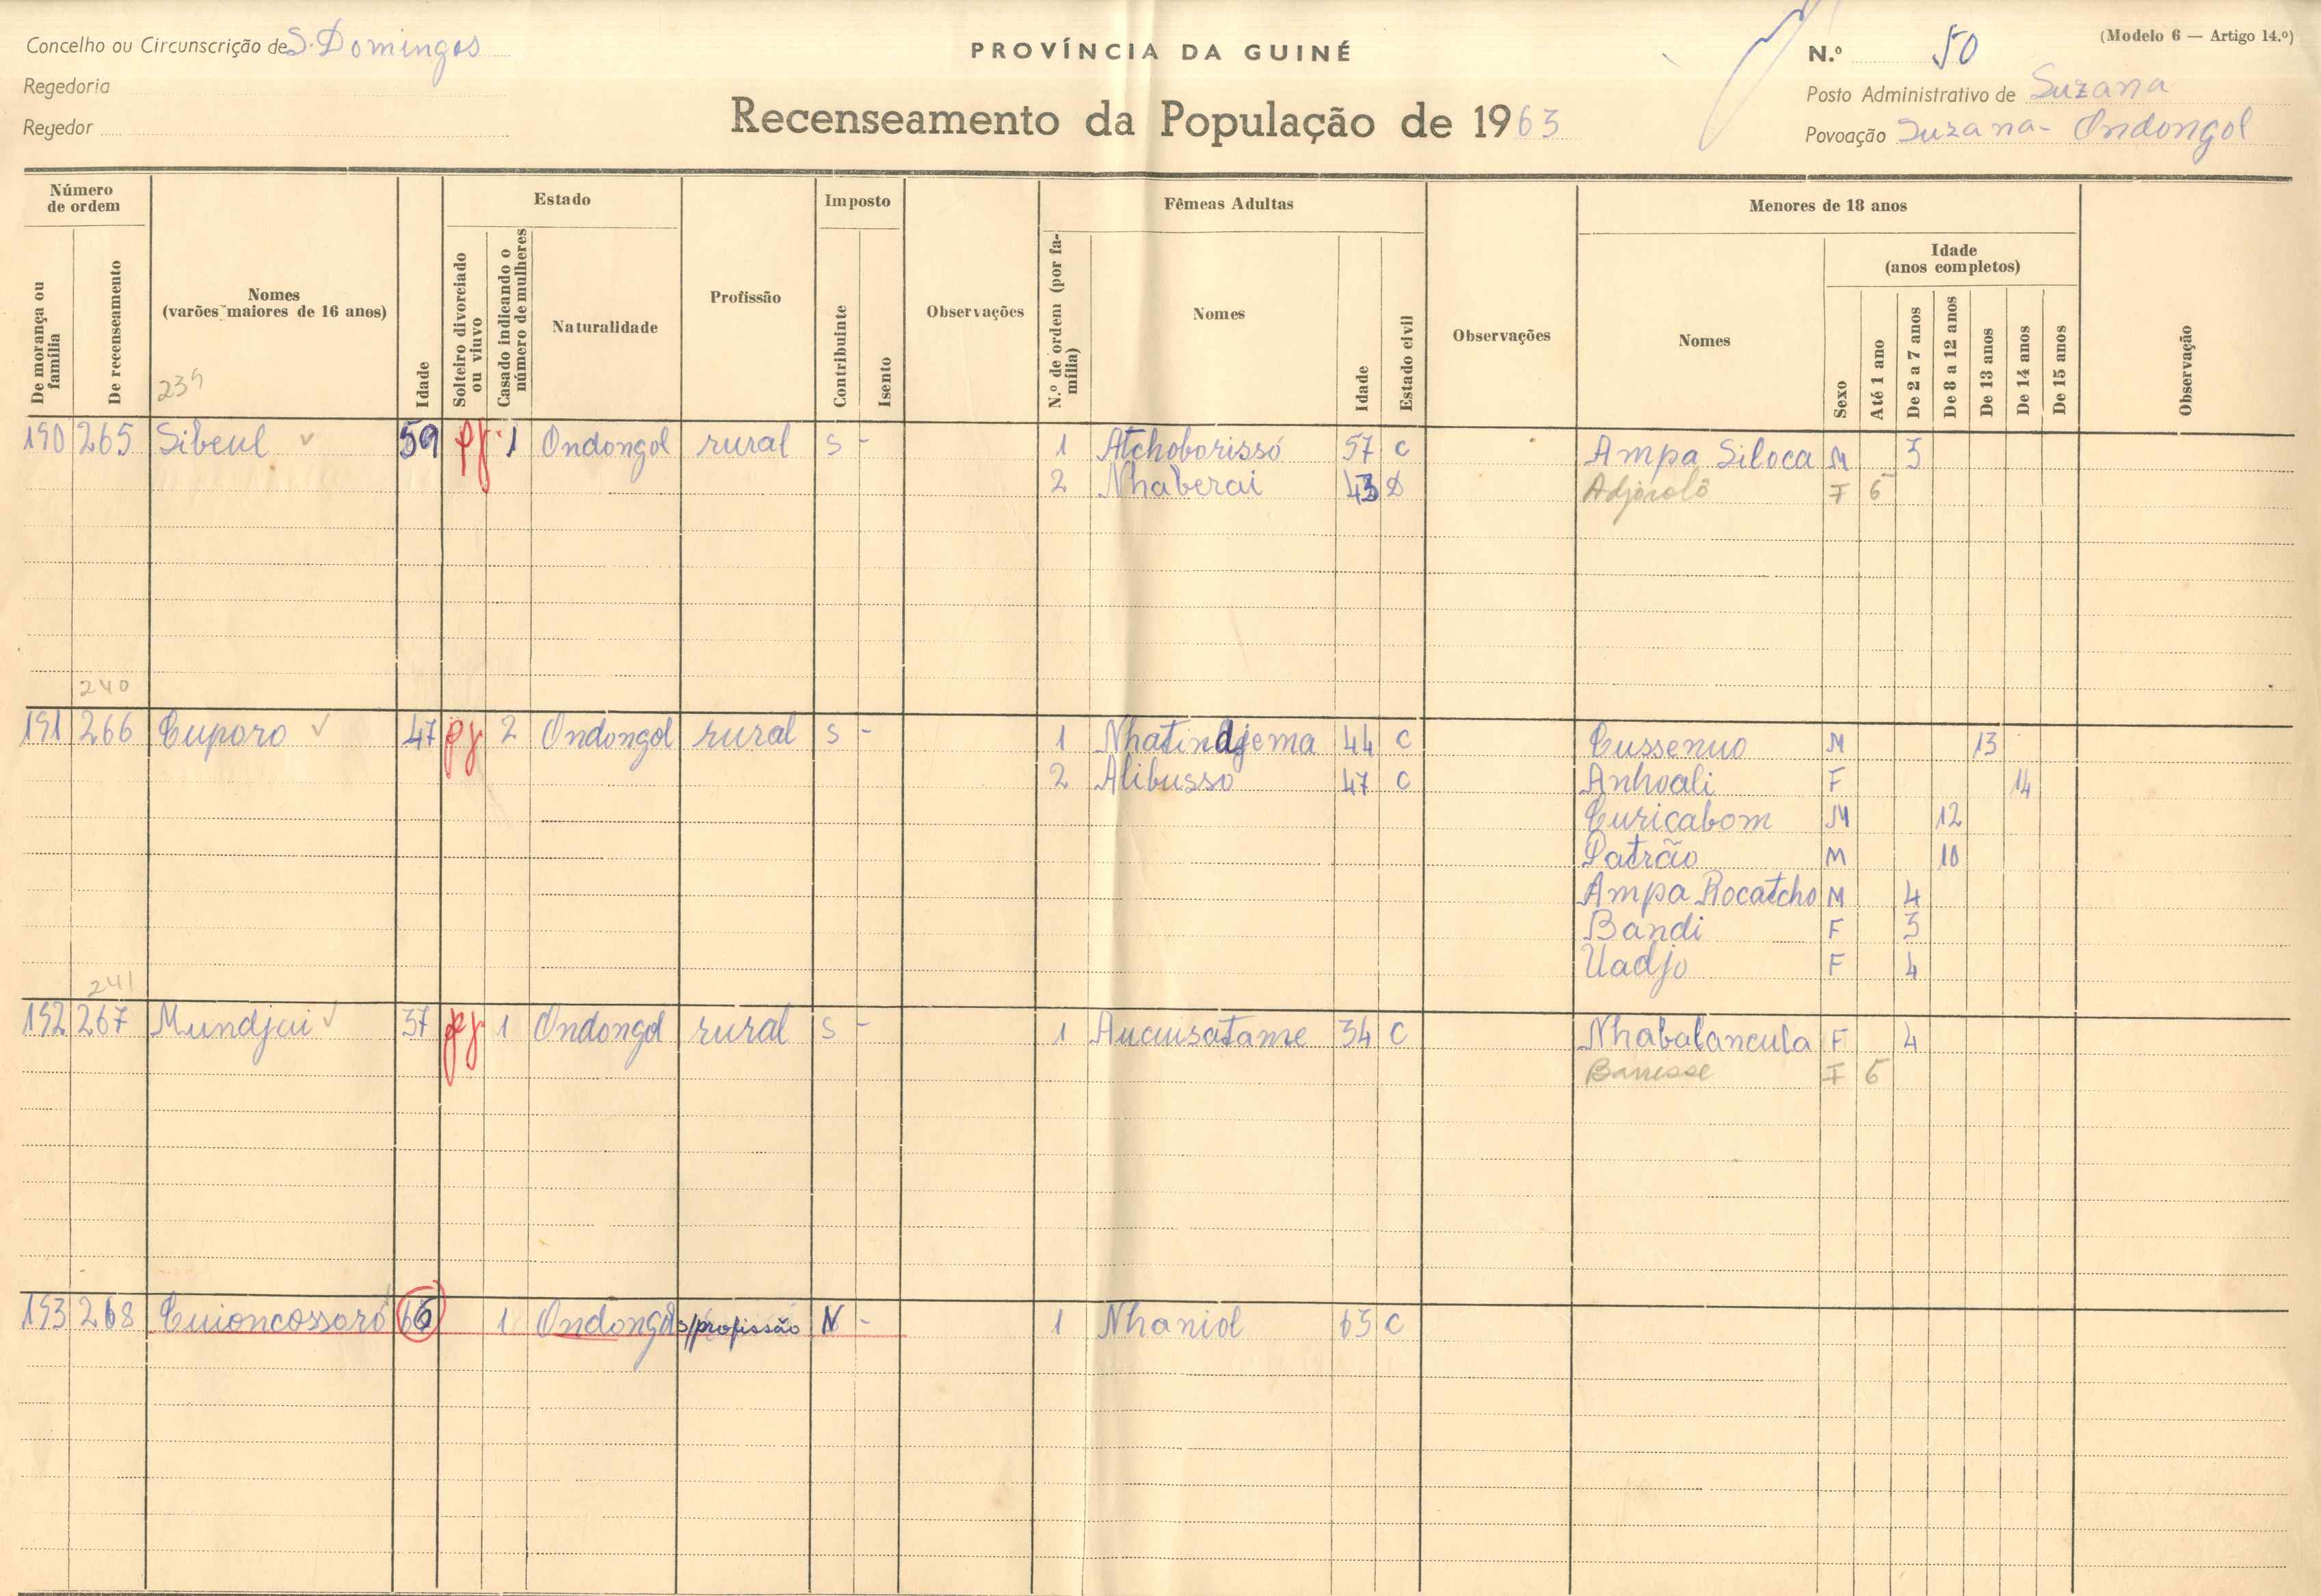 Concelho ou Circunscrição de S. Domingos
PROVÍNCIA DA GUINÉ
N.º 50
(Modelo 6 — Artigo 14.º)
Regedoria
Posto Administrativo de Suzana
Regedor
Recenseamento da População de 1963
Povoação Suzana - Ondongol
Número de ordem
Estado
Imposto
Fêmeas Adultas
Menores de 18 anos
De morança ou família
De recenseamento
Nomes (varões maiores de 16 anos)
Idade
Solteiro divorciado ou viuvo
Casado indicando o número de mulheres
Naturalidade
Profissão
Contribuinte
Isento
Observações
N.º de ordem (por família)
Nomes
Idade
Estado civil
Observações
Nomes
Sexo
Idade (anos completos)
Até 1 ano
De 2 a 7 anos
De 8 a 12 anos
De 13 anos
De 14 anos
De 15 anos
Observação
239
190 265 Sibeul 59 pg 1 Ondongol rural S - 1 Atchoborissó 57 C Ampa Siloca M 3
2 Nhaberai 43 F 6
240
191 266 Cuporo 47 pg 2 Ondongol rural S - 1 Nhatindjema 44 C Cussenuo M 13
2 Alibusso 47 C Anhoali F 14
Curicabom M 12
Patrão M 10
Ampa Rocatcho M 4
Bandi F 3
Uadjo F 4
241
192 267 Mundjai 37 pg 1 Ondongol rural S - 1 Aucuisatame 34 C Nhabalancula F 4
F 6
193 268 Cuioncossoró 66 1 Ondongol s/profissão N - 1 Nhaniol 63 C